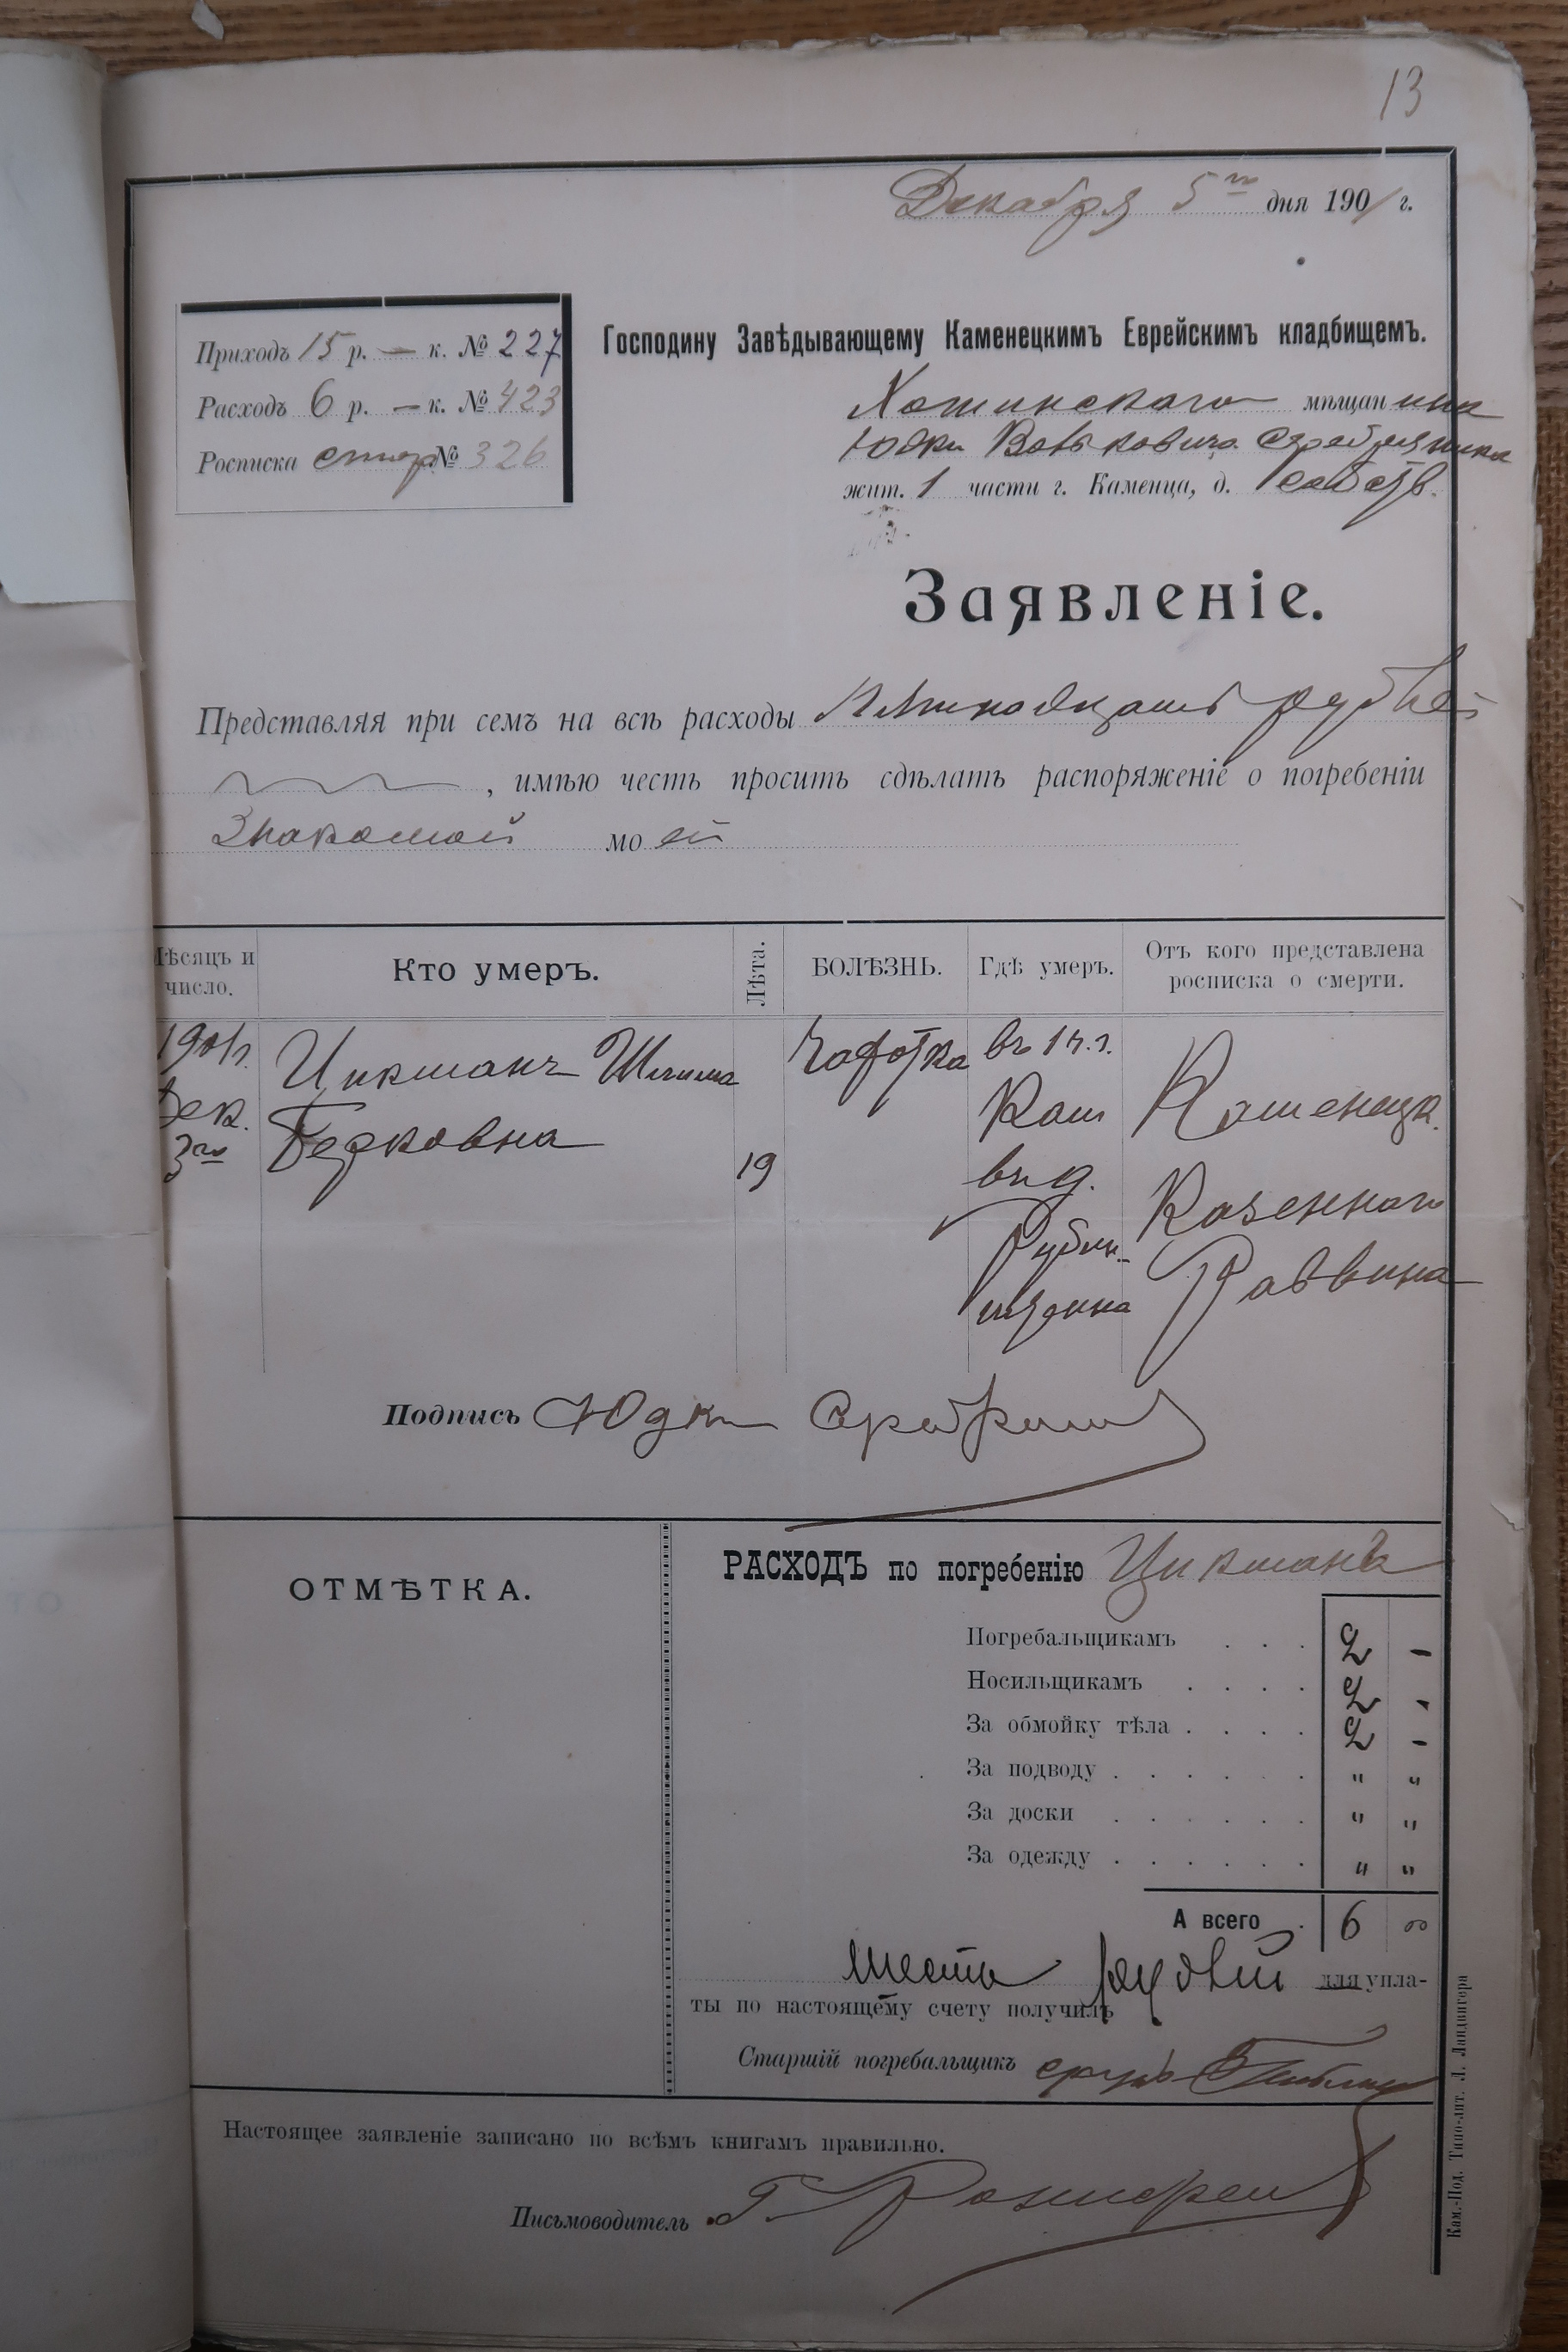 13
Декабря 5го дня 1901 г.
Приходъ 15 р. — к. № 227
Расходъ 6 р. — к. № 423
Росписка стор № 326
Господину Завѣдывающему Каменецкимъ Еврейскимъ кладбищемъ.
Хотинскаго мѣщанина
Юдки Вольковича Серебрянника
жит. 1 части г. Каменца, д. собств.
Заявленіе.
Представляя при семъ на всѣ расходы Пятнадцать рублей
, имѣю честь просить сдѣлать распоряженіе о погребеніи
Знакомой моей
Мѣсяцъ и число.
Кто умеръ.
Лѣта.
БОЛѢЗНЬ.
Гдѣ умеръ.
Отъ кого представлена росписка о смерти.
1901г.
Дек.
3го
Цикманъ
Берковна
19
Чахотка
въ 1 ч. г.
Кам
въ д.
Рубин-
штейна
Каменецк.
Казеннаго
Раввина
Подпись Юдко
ОТМѢТКА.
РАСХОДЪ по погребенію Цикманъ
Погребальщикамъ . . . 2 -
Носильщикамъ . . . . 2 -
За обмойку тѣла . . . . 2 -
За подводу . . . . . . " "
За доски . . . . . . " "
За одежду . . . . . . " "
А всего . 6 00
Шесть рублей для упла-
ты по настоящему счету получилъ
Старшій погребальщикъ
Настоящее заявленіе записано по всѣмъ книгамъ правильно.
Письмоводитель Г.
Кам.-Под. Типо-лит. Л. Ландвигера